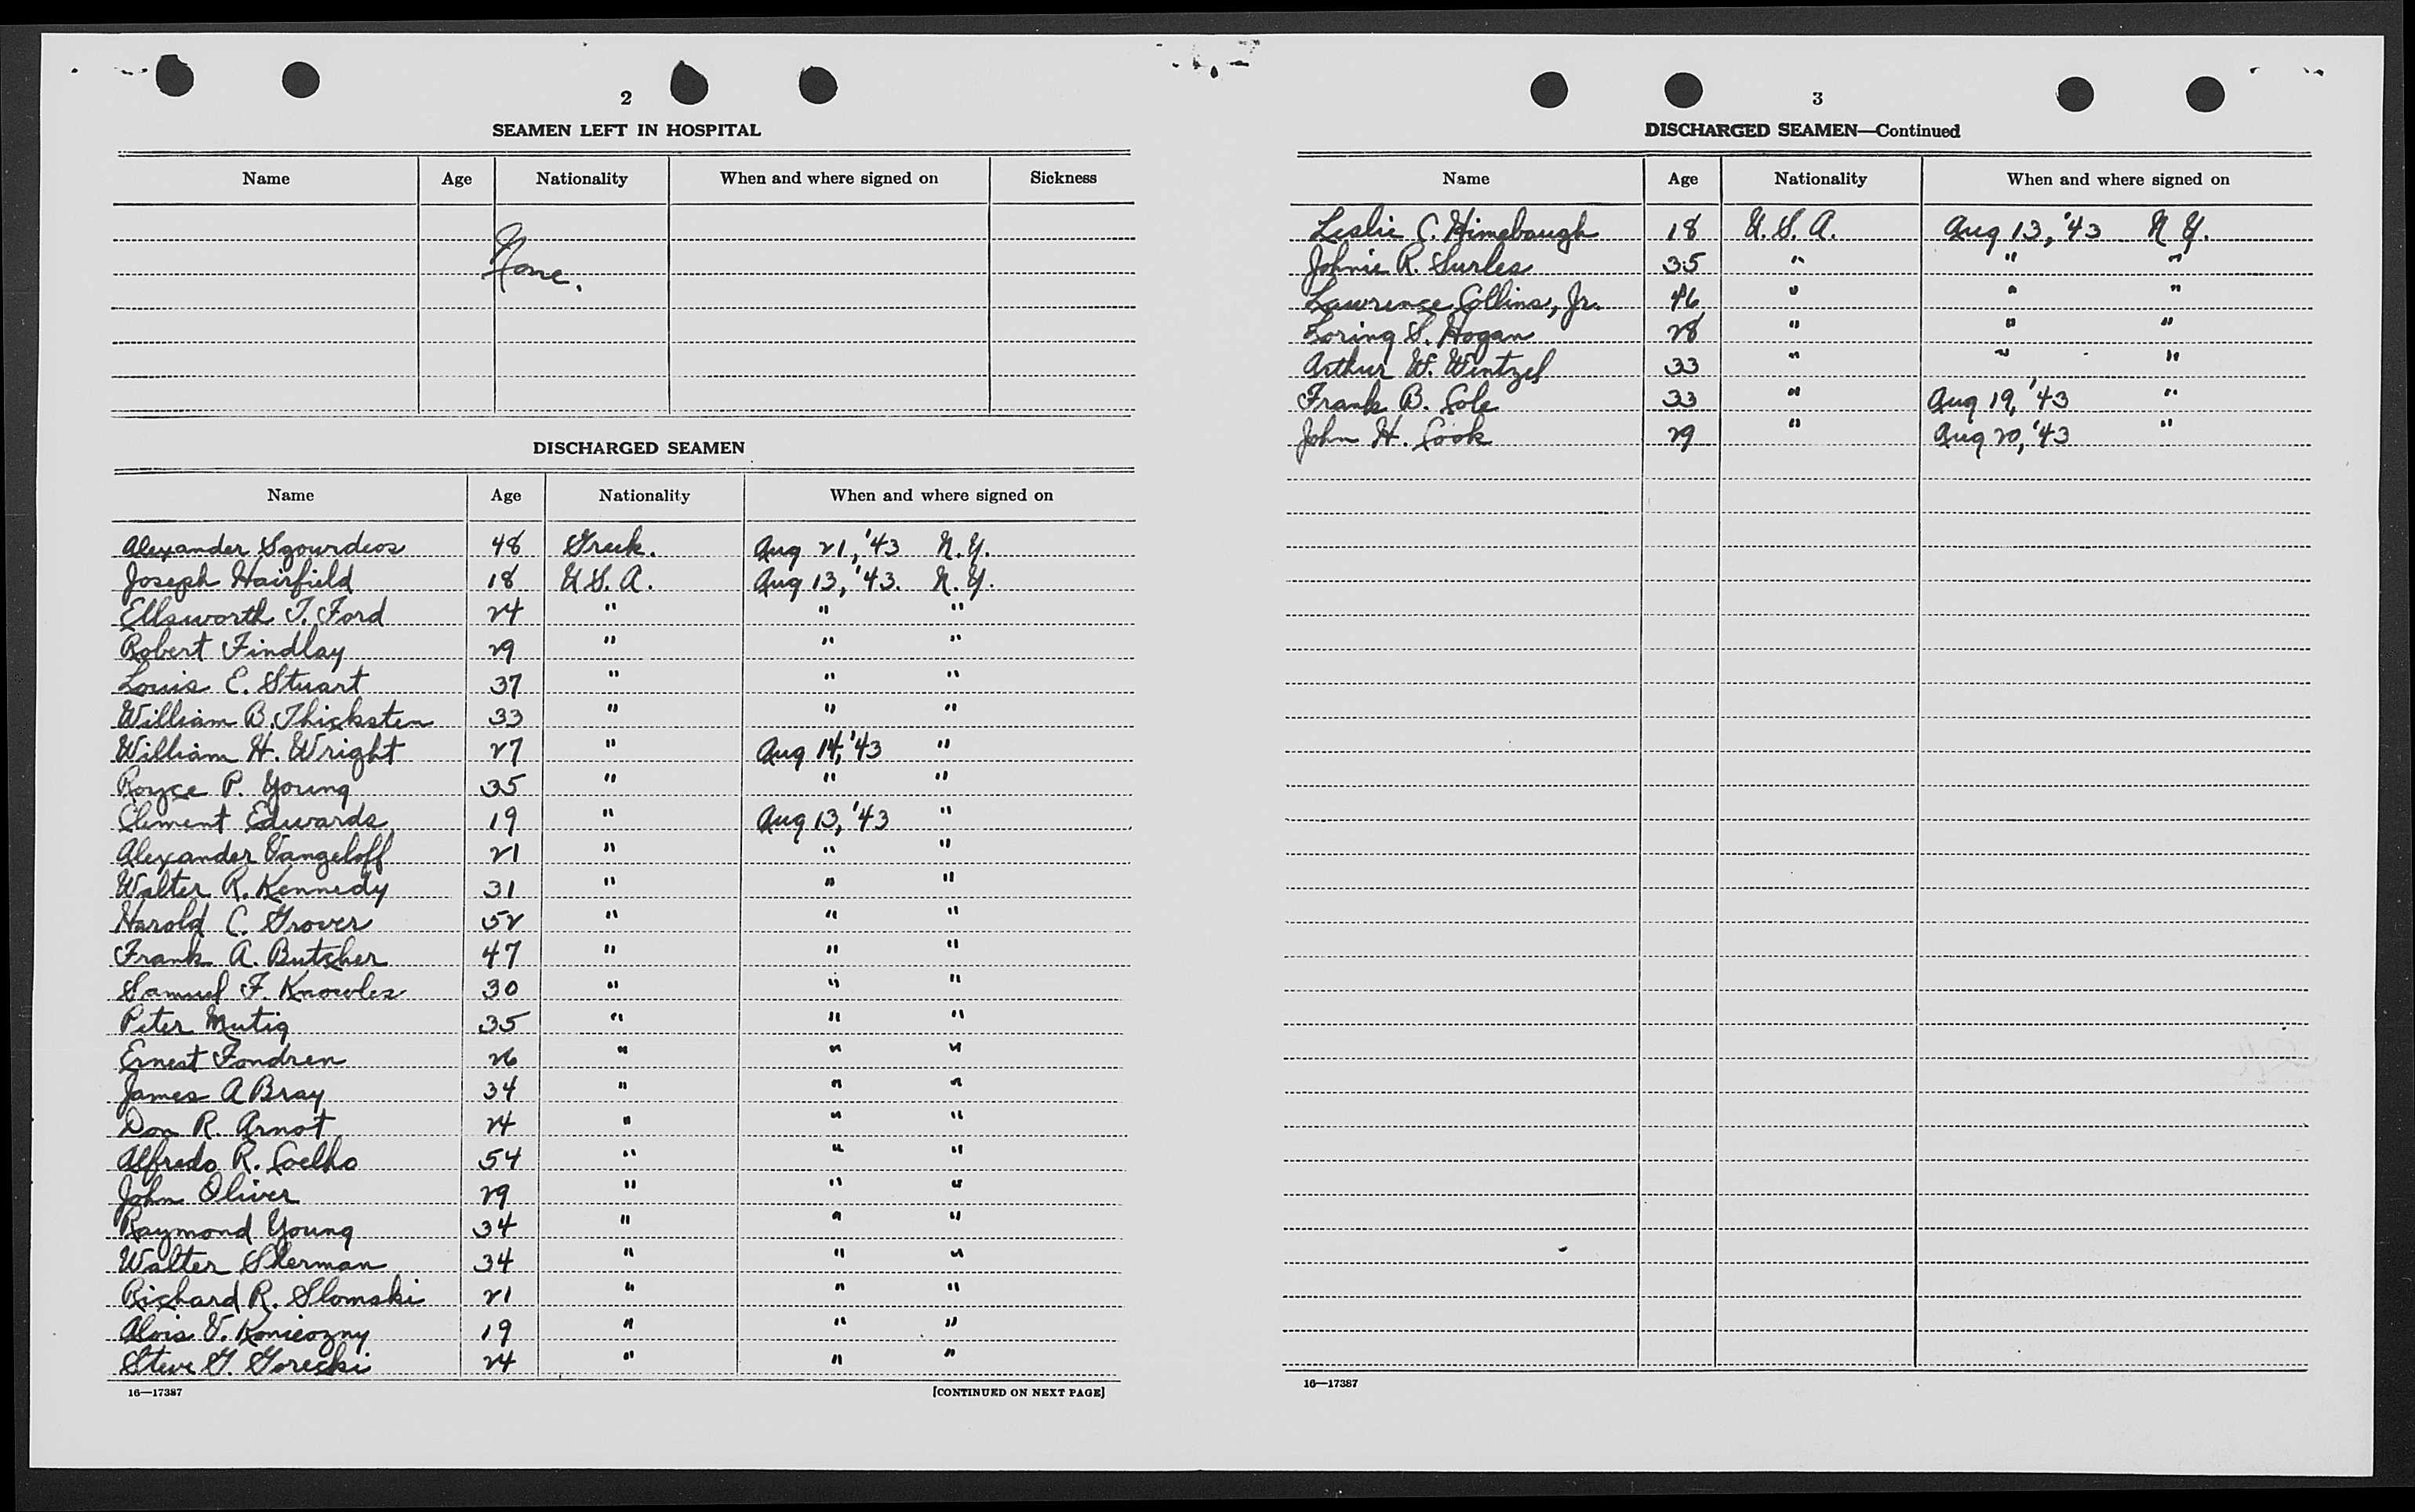 2
SEAMEN LEFT IN HOSPITAL
Name Age Nationality When and where signed on Sickness
None.
DISCHARGED SEAMEN
Name Age Nationality When and where signed on
Alexander Sgourdeos 48 Greek. Aug 21, '43 N.Y.
Joseph Hairfield 18 U.S.A. Aug 13, '43. N.Y.
Ellsworth T. Ford 24 " " "
Robert Findlay 29 " " "
Louis E. Stuart 37 " " "
William B. Thicksten 33 " " "
William H. Wright 27 " Aug 14, '43 "
Royce P. Young 35 " " "
Clement Edwards 19 " Aug 13, '43 "
Alexander Vangeloff 21 " " "
Walter R. Kennedy 31 " " "
Harold C. Grover 52 " " "
Frank A. Butcher 47 " " "
Samuel F. Knowles 30 " " "
Peter Mutig 35 " " "
Ernest Fondren 26 " " "
James A Bray 34 " " "
Don R. Arnot 24 " " "
Alfredo R. Coelho 54 " " "
John Oliver 29 " " "
Raymond Young 34 " " "
Walter Sherman 34 " " "
Richard R. Slomski 21 " " "
Alois V. Konieozny 19 " " "
Steve G. Gorecki 24 " " "
16—17387 [CONTINUED ON NEXT PAGE]
3
DISCHARGED SEAMEN—Continued
Name Age Nationality When and where signed on
Leslie C. Himebaugh 18 U.S.A. Aug 13, '43 N.Y.
Johnie R. Surles 35 " " "
Lawrence Collins, Jr. 46 " " "
Loring S. Hogan 28 " " "
Arthur W. Wentzel 33 " " "
Frank B. Cole 33 " Aug 19, '43 "
John H. Cook 29 " Aug 20, '43 "
16—17387